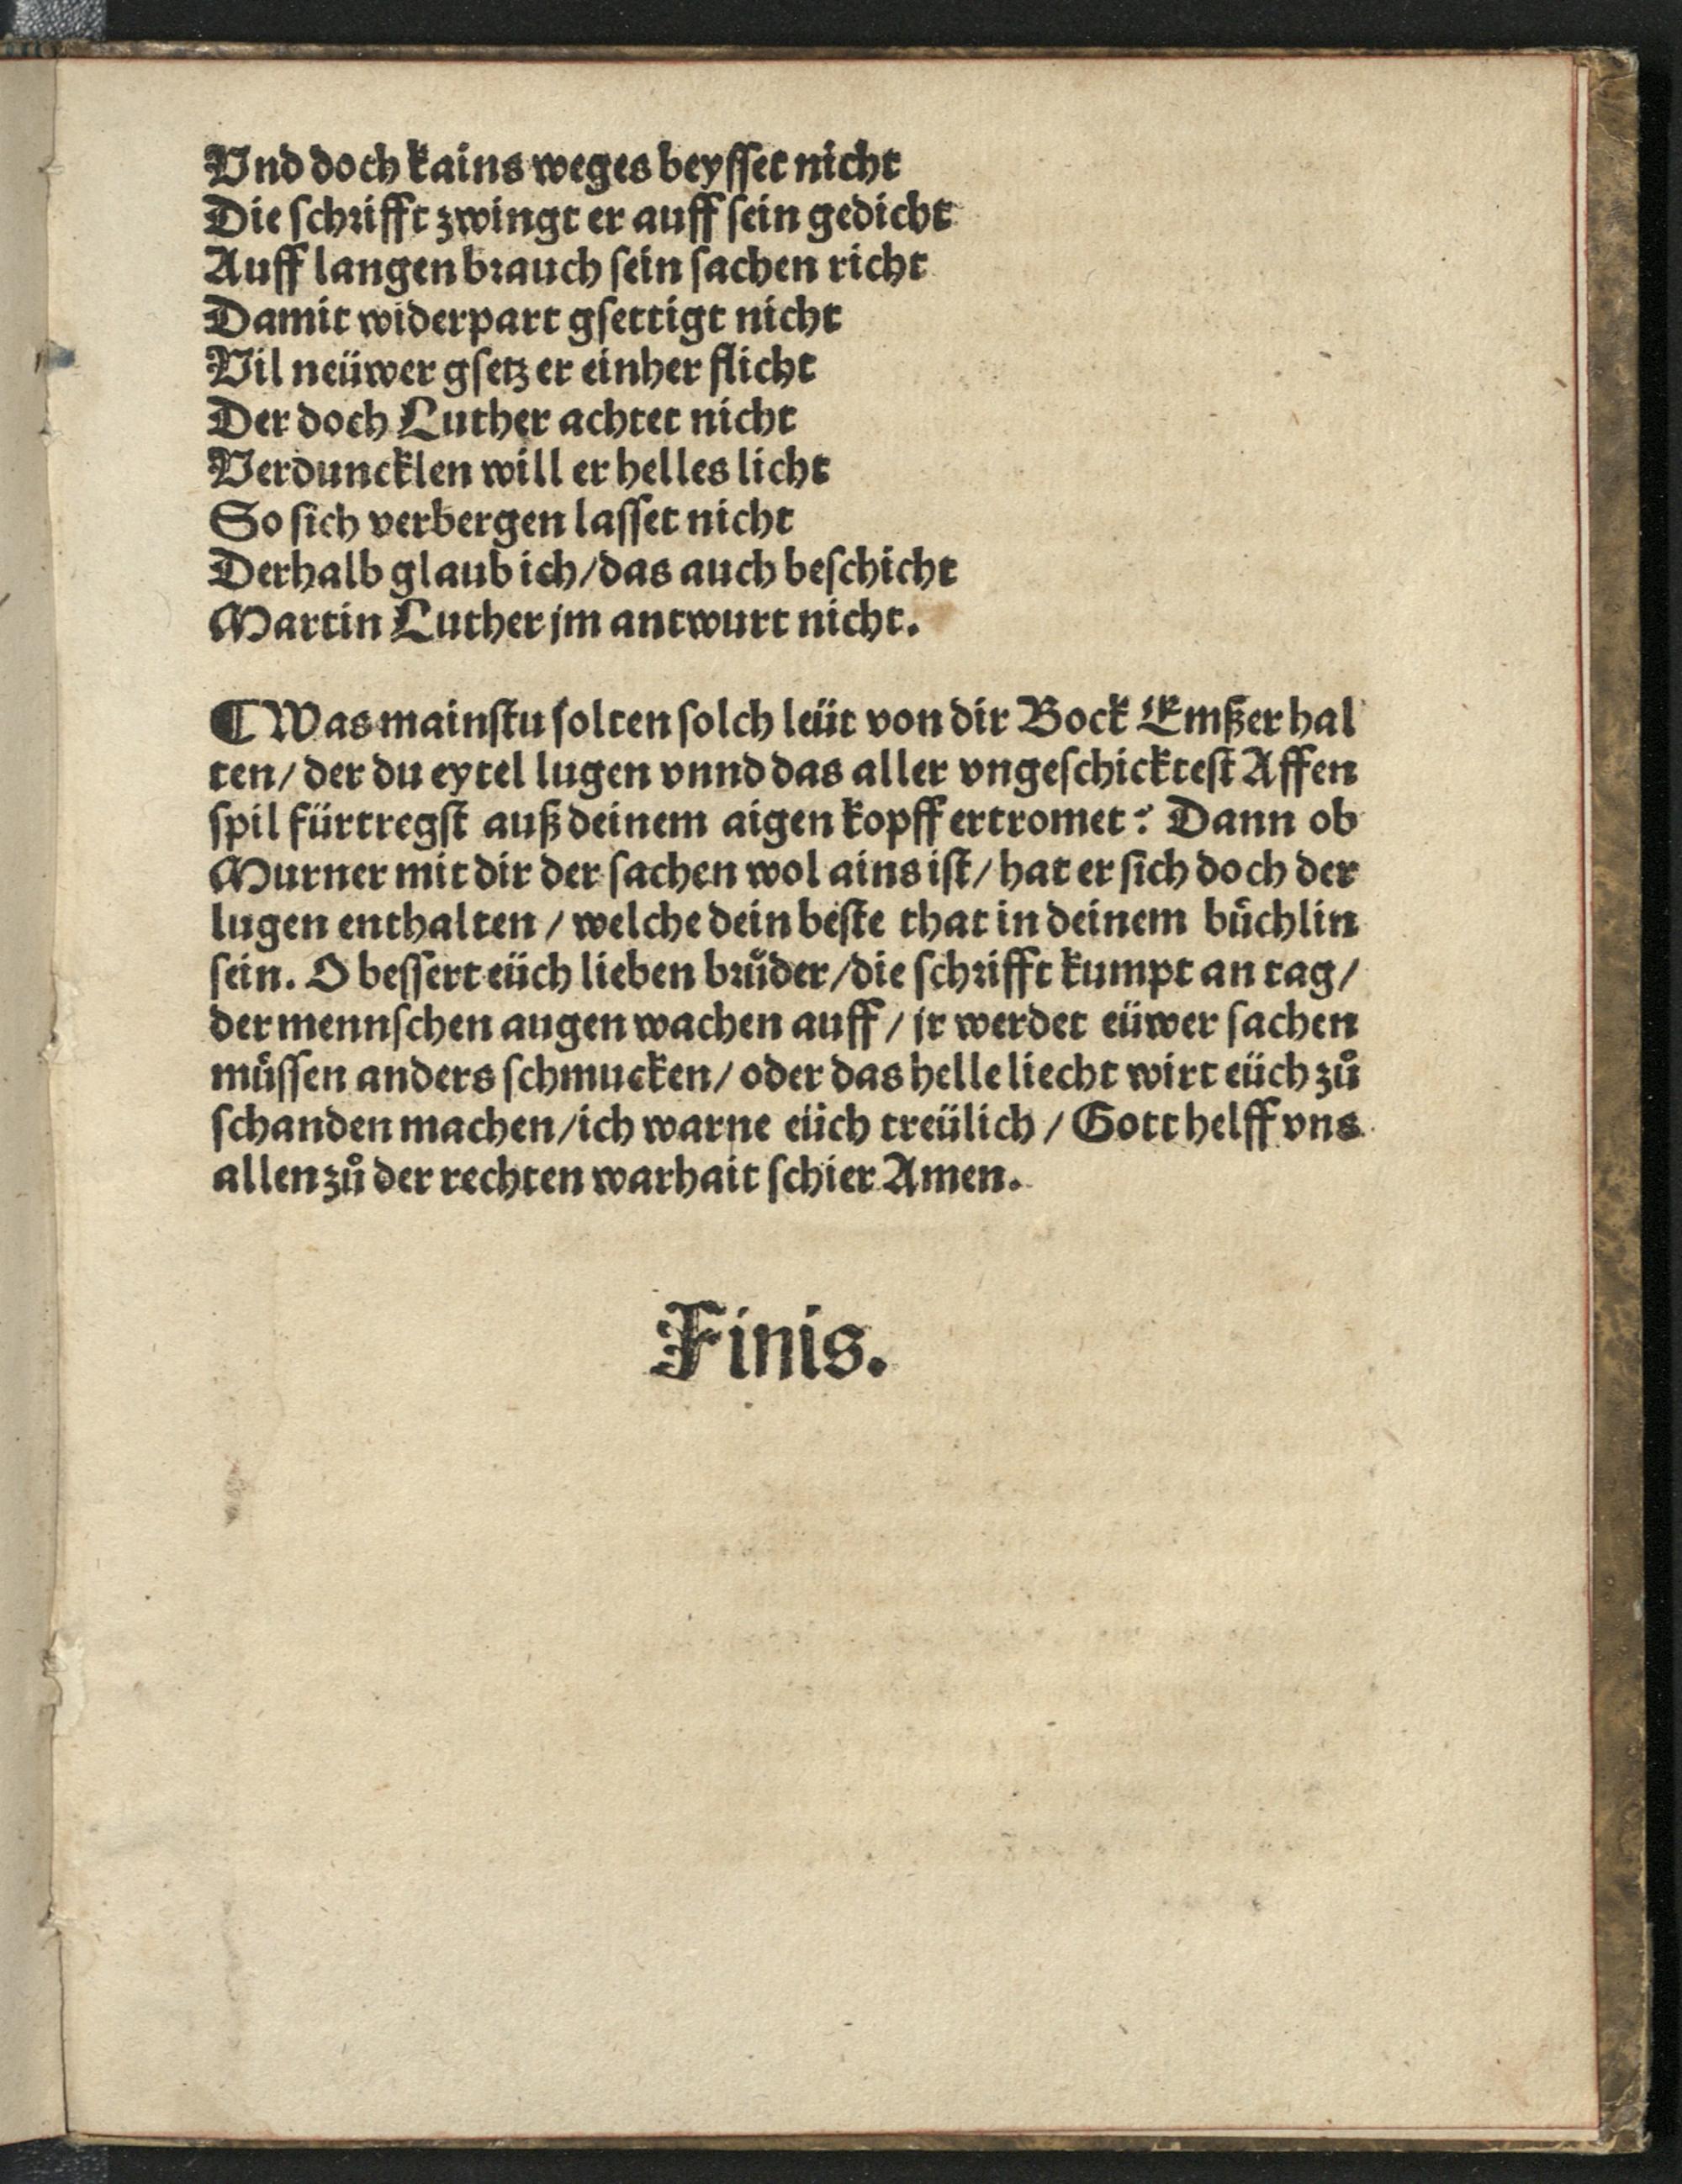 Vnd doch kains weges beyſſet nicht
Die ſchrifft zwingt er auff ſein gedicht
Auff langen brauch ſein ſachen richt
Damit widerpart gſettigt nicht
Vil neüwer gſetz er einher flicht
Der doch Luther achtet nicht
Verduncklen will er helles licht
So ſich verbergen laſſet nicht
Derhalb glaub ich/das auch beſchicht
Martin Luther jm antwurt nicht.
¶ Was mainſtu ſolten ſolch leüt von dir Bock Emßer hal
ten/ der du eytel lugen vnnd das aller vngeſchickteſt Affen
ſpil fürtregſt auß deinem aigen kopff ertromet? Dann ob
Murner mit dir der ſachen wol ains iſt/ hat er ſich doch der
lugen enthalten / welche dein beſte that in deinem buͤchlin
ſein. O beſſert eüch lieben bruͤder/die ſchrifft kumpt an tag/
der mennſchen augen wachen auff / jr werdet eüwer ſachen
muͤſſen anders ſchmucken/ oder das helle liecht wirt eüch zuͦ
ſchanden machen/ich warne eüch treülich / Gott helff vns
allen zuͦ der rechten warhait ſchier Amen.
Finis.